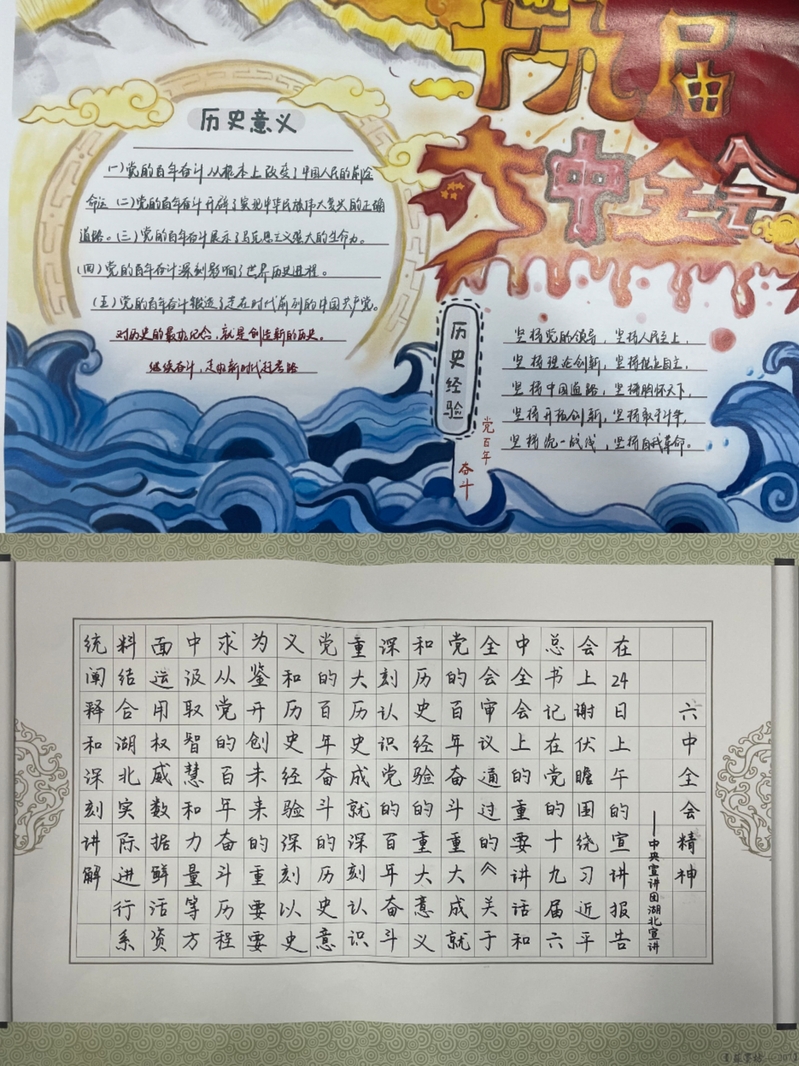 十九届
六中全会
历史意义
(一)党的百年奋斗从根本上改变了中国人民的前途
命运(二)党的百年奋斗开辟了实现中华民族伟大复兴的正确
道路。(三)党的百年奋斗展示了马克思主义强大的生命力。
(四)党的百年奋斗深刻影响了世界历史进程。
(五)党的百年奋斗锻造了走在时代前列的中国共产党。
对历史的最好纪念,就是创造新的历史。
继续奋斗,走好新时代赶考路
历史经验
党百年
奋斗
坚持党的领导,坚持人民至上,
坚持理论创新,坚持独立自主,
坚持中国道路,坚持胸怀天下,
坚持开拓创新,坚持敢于斗争,
坚持统一战线,坚持自我革命。
六中全会精神
——中央宣讲团湖北宣讲
在24日上午的宣讲报告
会上谢伏瞻围绕习近平
总书记在党的十九届六
中全会上的重要讲话和
全会审议通过的《关于
党的百年奋斗重大成就
和历史经验的重大意义
深刻认识党的百年奋斗
重大历史成就深刻认识
党的百年奋斗的历史意
义和历史经验深刻以史
为鉴开创未来的重要要
求从党的百年奋斗历程
中汲取智慧和力量等方
面运用权威数据鲜活资
料结合湖北实际进行系
统阐释和深刻讲解